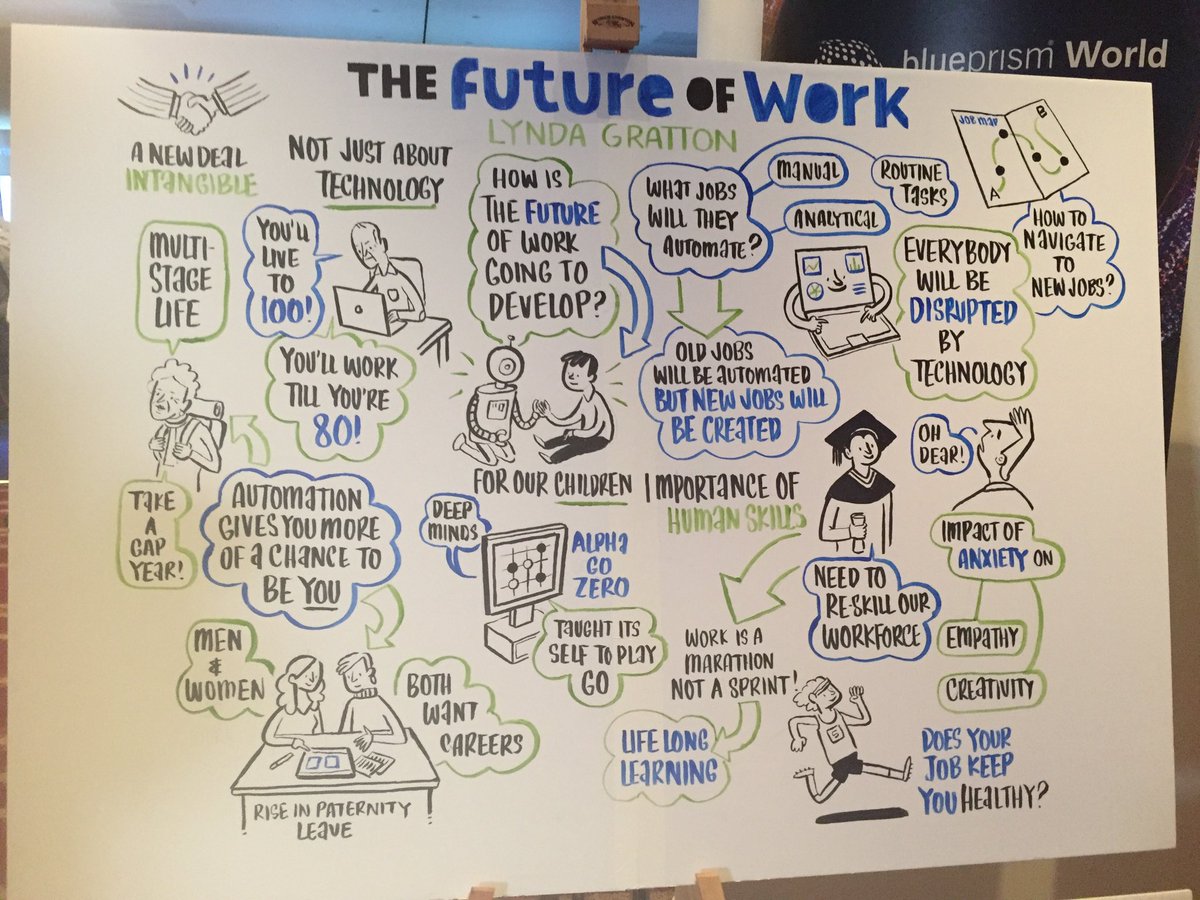 blueprism® World
THE FUTURE OF WORK
LYNDA GRATTON
A NEW DEAL
INTANGIBLE
NOT JUST ABOUT
TECHNOLOGY
MULTI-
STAGE
LIFE
YOU'LL
LIVE
TO
100!
YOU'LL WORK
TILL YOU'RE
80!
TAKE
A
GAP
YEAR!
AUTOMATION
GIVES YOU MORE
OF A CHANCE TO
BE YOU
MEN
&
WOMEN
BOTH
WANT
CAREERS
RISE IN PATERNITY
LEAVE
HOW IS
THE FUTURE
OF WORK
GOING TO
DEVELOP?
FOR OUR CHILDREN
DEEP
MINDS
ALPHA
GO
ZERO
TAUGHT ITS
SELF TO PLAY
GO
WHAT JOBS
WILL THEY
AUTOMATE?
MANUAL
ROUTINE
TASKS
ANALYTICAL
OLD JOBS
WILL BE AUTOMATED
BUT NEW JOBS WILL
BE CREATED
JOB MAP
A
B
HOW TO
NAVIGATE
TO
NEW JOBS?
EVERYBODY
WILL BE
DISRUPTED
BY
TECHNOLOGY
IMPORTANCE OF
HUMAN SKILLS
NEED TO
RE-SKILL OUR
WORKFORCE
OH
DEAR!
IMPACT OF
ANXIETY ON
EMPATHY
CREATIVITY
WORK IS A
MARATHON
NOT A SPRINT!
LIFE LONG
LEARNING
5
DOES YOUR
JOB KEEP
YOU HEALTHY?